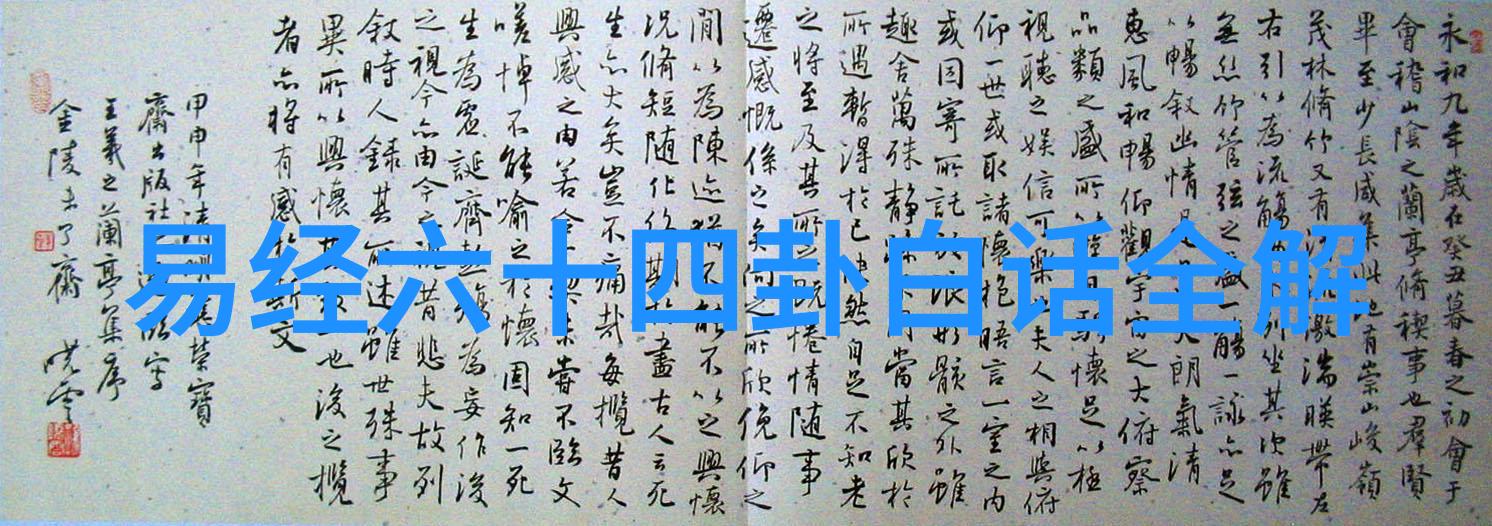 易经六十四卦白话全解
永和九年歲在癸丑暮春之初會于
會稽山陰之蘭亭脩稧事也群賢
畢至少長咸集此地有崇山峻嶺
茂林脩竹又有清流激湍暎帶左
右引以為流觴曲水列坐其次雖
無絲竹管弦之盛一觴一詠亦足
以暢敘幽情是日也天朗氣清
惠風和暢仰觀宇宙之大俯察
品類之盛所以遊目騁懷足以極
視聽之娛信可樂也夫人之相與俯
仰一世或取諸懷抱晤言一室之內
或因寄所託放浪形骸之外雖
趣舍萬殊靜躁不同當其欣於
所遇暫得於己快然自足不知老
之將至及其所之既惓情隨事
遷感慨係之矣向之所欣俛仰之
閒以為陳迹猶不能不以之興懷
況脩短隨化終期於盡古人云死
生亦大矣豈不痛哉每攬昔人
興感之由若合一契未嘗不臨文
嗟悼不能喻之於懷固知一死
生為虛誕齊彭殤為妄作後
之視今亦由今之視昔悲夫故列
敘時人錄其所述雖世殊事
異所以興懷其致一也後之攬
者亦將有感於斯文
甲申年清明 榮寶
齋出版社 寫
王羲之蘭亭集序
金陵未了齋 曉雲